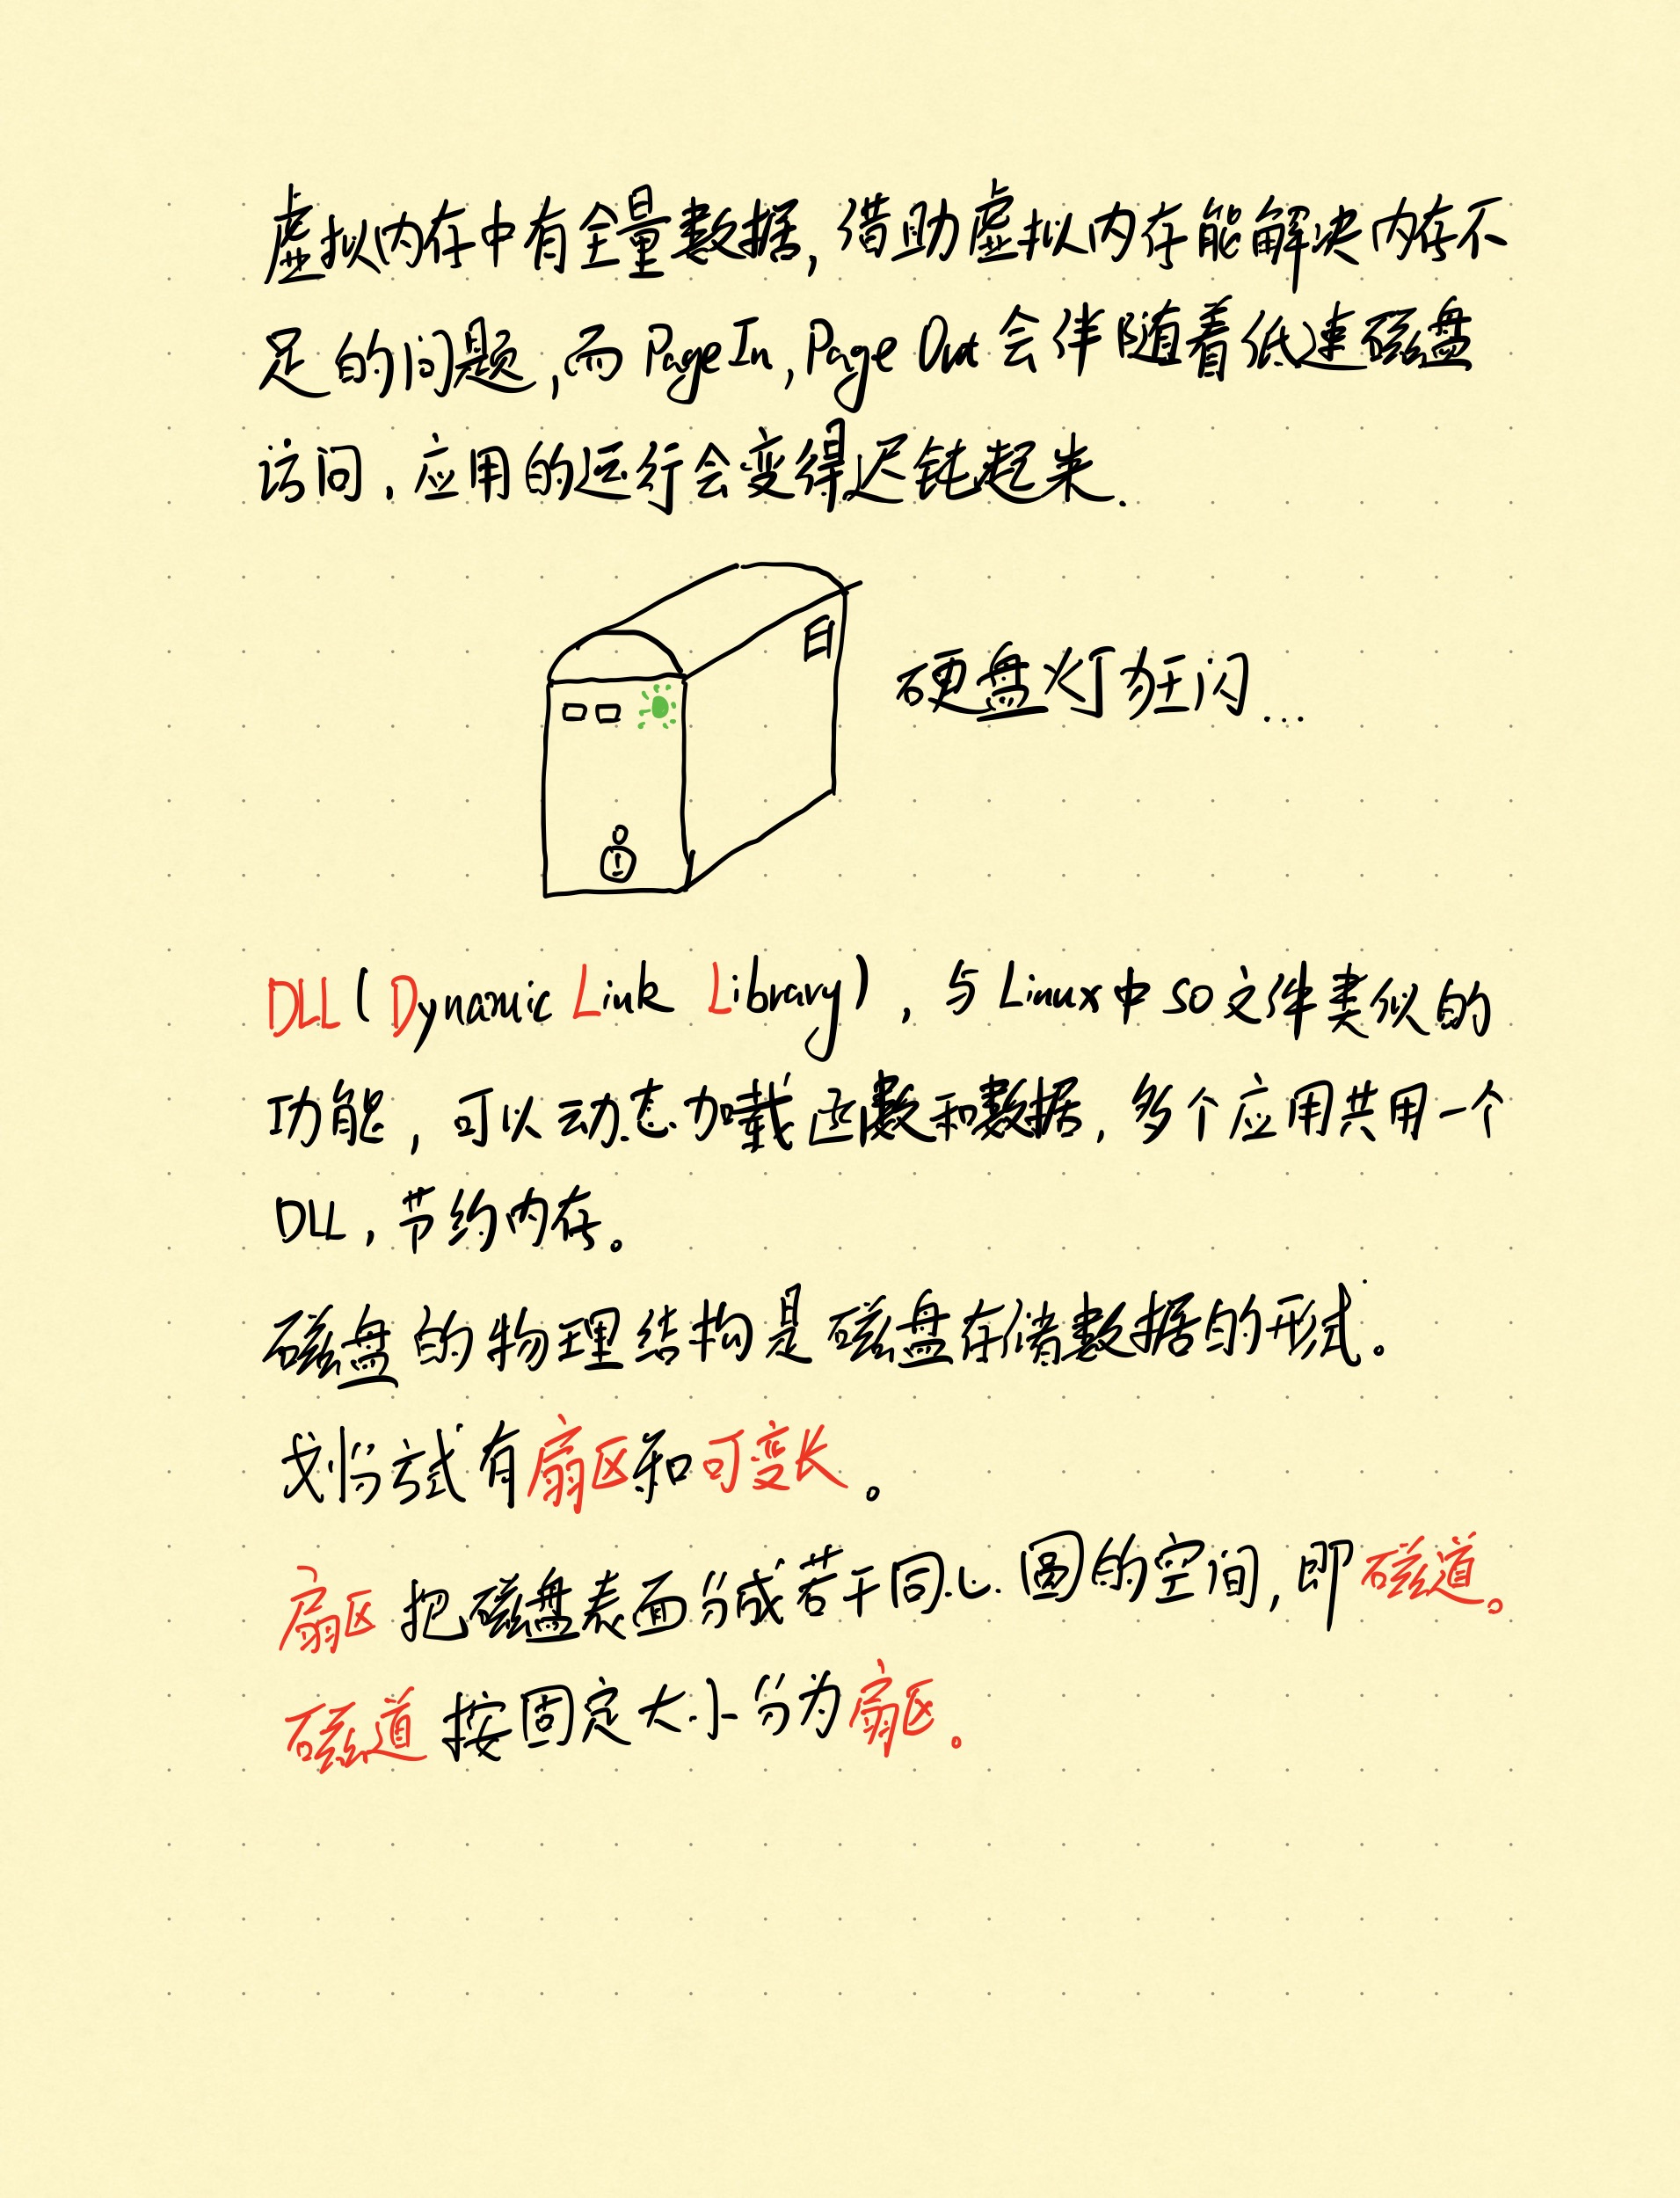 虚拟内存中有全量数据,借助虚拟内存能解决内存不
足的问题,而PageIn,Page Out会伴随着低速磁盘
访问,应用的运行会变得迟钝起来.
硬盘灯狂闪...
DLL(Dynamic Link Library),与Linux中so文件类似的
功能,可以动态加载函数和数据,多个应用共用一个
DLL,节约内存。
磁盘的物理结构是磁盘存储数据的形式。
划分方式有扇区和可变长。
扇区把磁盘表面分成若干同心圆的空间,即磁道。
磁道按固定大小分为扇区。